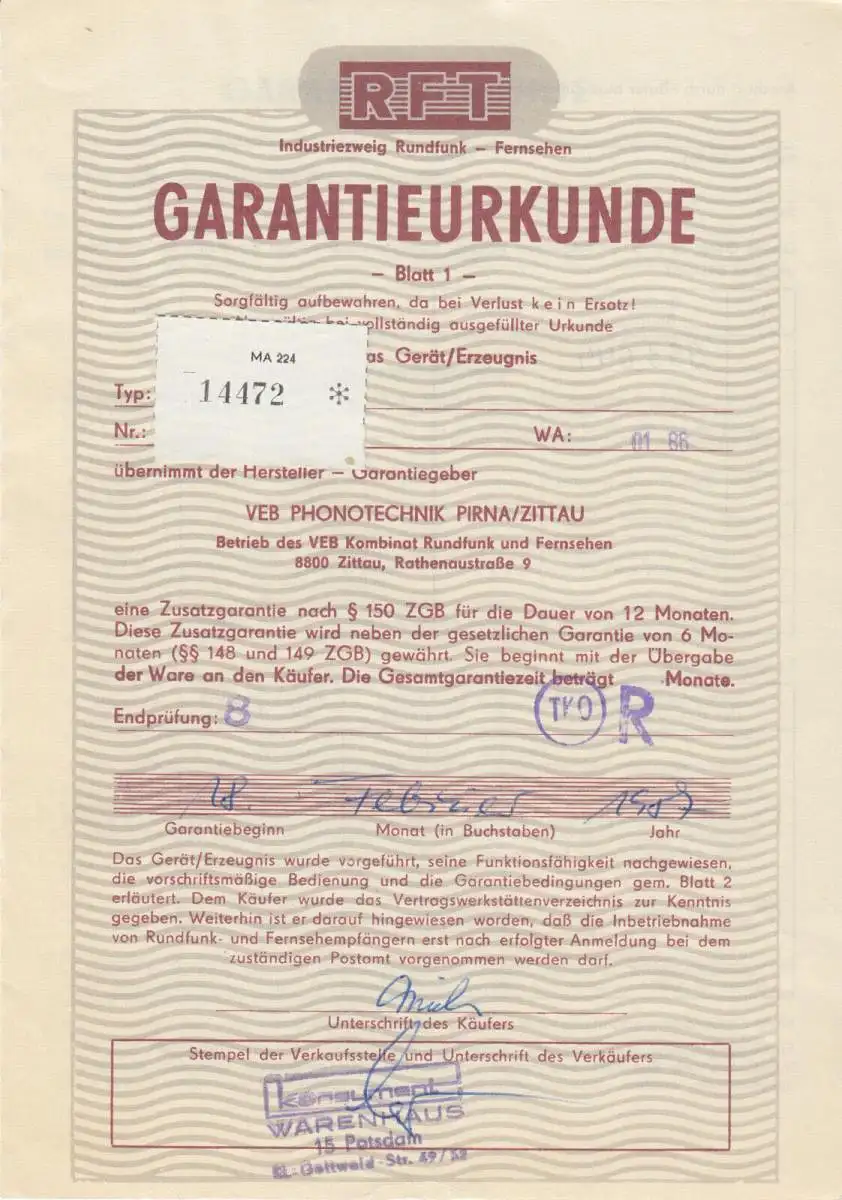 RFT
Industriezweig Rundfunk – Fernsehen
GARANTIEURKUNDE
– Blatt 1 –
Sorgfältig aufbewahren, da bei Verlust kein Ersatz!
vollständig ausgefüllter Urkunde
as Gerät/Erzeugnis
MA 224
Typ: 14472 *
Nr.: WA: 01 86
übernimmt der Hersteller – Garantiegeber
VEB PHONOTECHNIK PIRNA/ZITTAU
Betrieb des VEB Kombinat Rundfunk und Fernsehen
8800 Zittau, Rathenaustraße 9
eine Zusatzgarantie nach § 150 ZGB für die Dauer von 12 Monaten.
Diese Zusatzgarantie wird neben der gesetzlichen Garantie von 6 Mo-
naten (§§ 148 und 149 ZGB) gewährt. Sie beginnt mit der Übergabe
der Ware an den Käufer. Die Gesamtgarantiezeit beträgt Monate.
Endprüfung: 8 TKO R
18. Februar 1987
Garantiebeginn Monat (in Buchstaben) Jahr
Das Gerät/Erzeugnis wurde vorgeführt, seine Funktionsfähigkeit nachgewiesen,
die vorschriftsmäßige Bedienung und die Garantiebedingungen gem. Blatt 2
erläutert. Dem Käufer wurde das Vertragswerkstättenverzeichnis zur Kenntnis
gegeben. Weiterhin ist er darauf hingewiesen worden, daß die Inbetriebnahme
von Rundfunk- und Fernsehempfängern erst nach erfolgter Anmeldung bei dem
zuständigen Postamt vorgenommen werden darf.
Unterschrift des Käufers
Stempel der Verkaufsstelle und Unterschrift des Verkäufers
konsument
WARENHAUS
15 Potsdam
Kl.-Gottwald-Str. 49/52